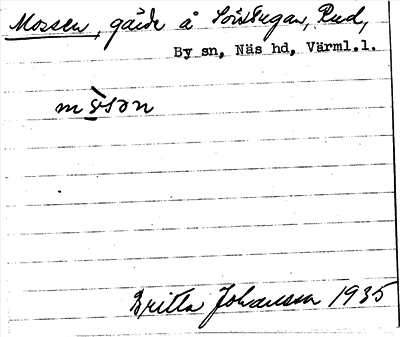 Mossen, gärde å Sörstugan, Rud,
By sn, Näs hd, Värml.l.
Britta Johansson 1935